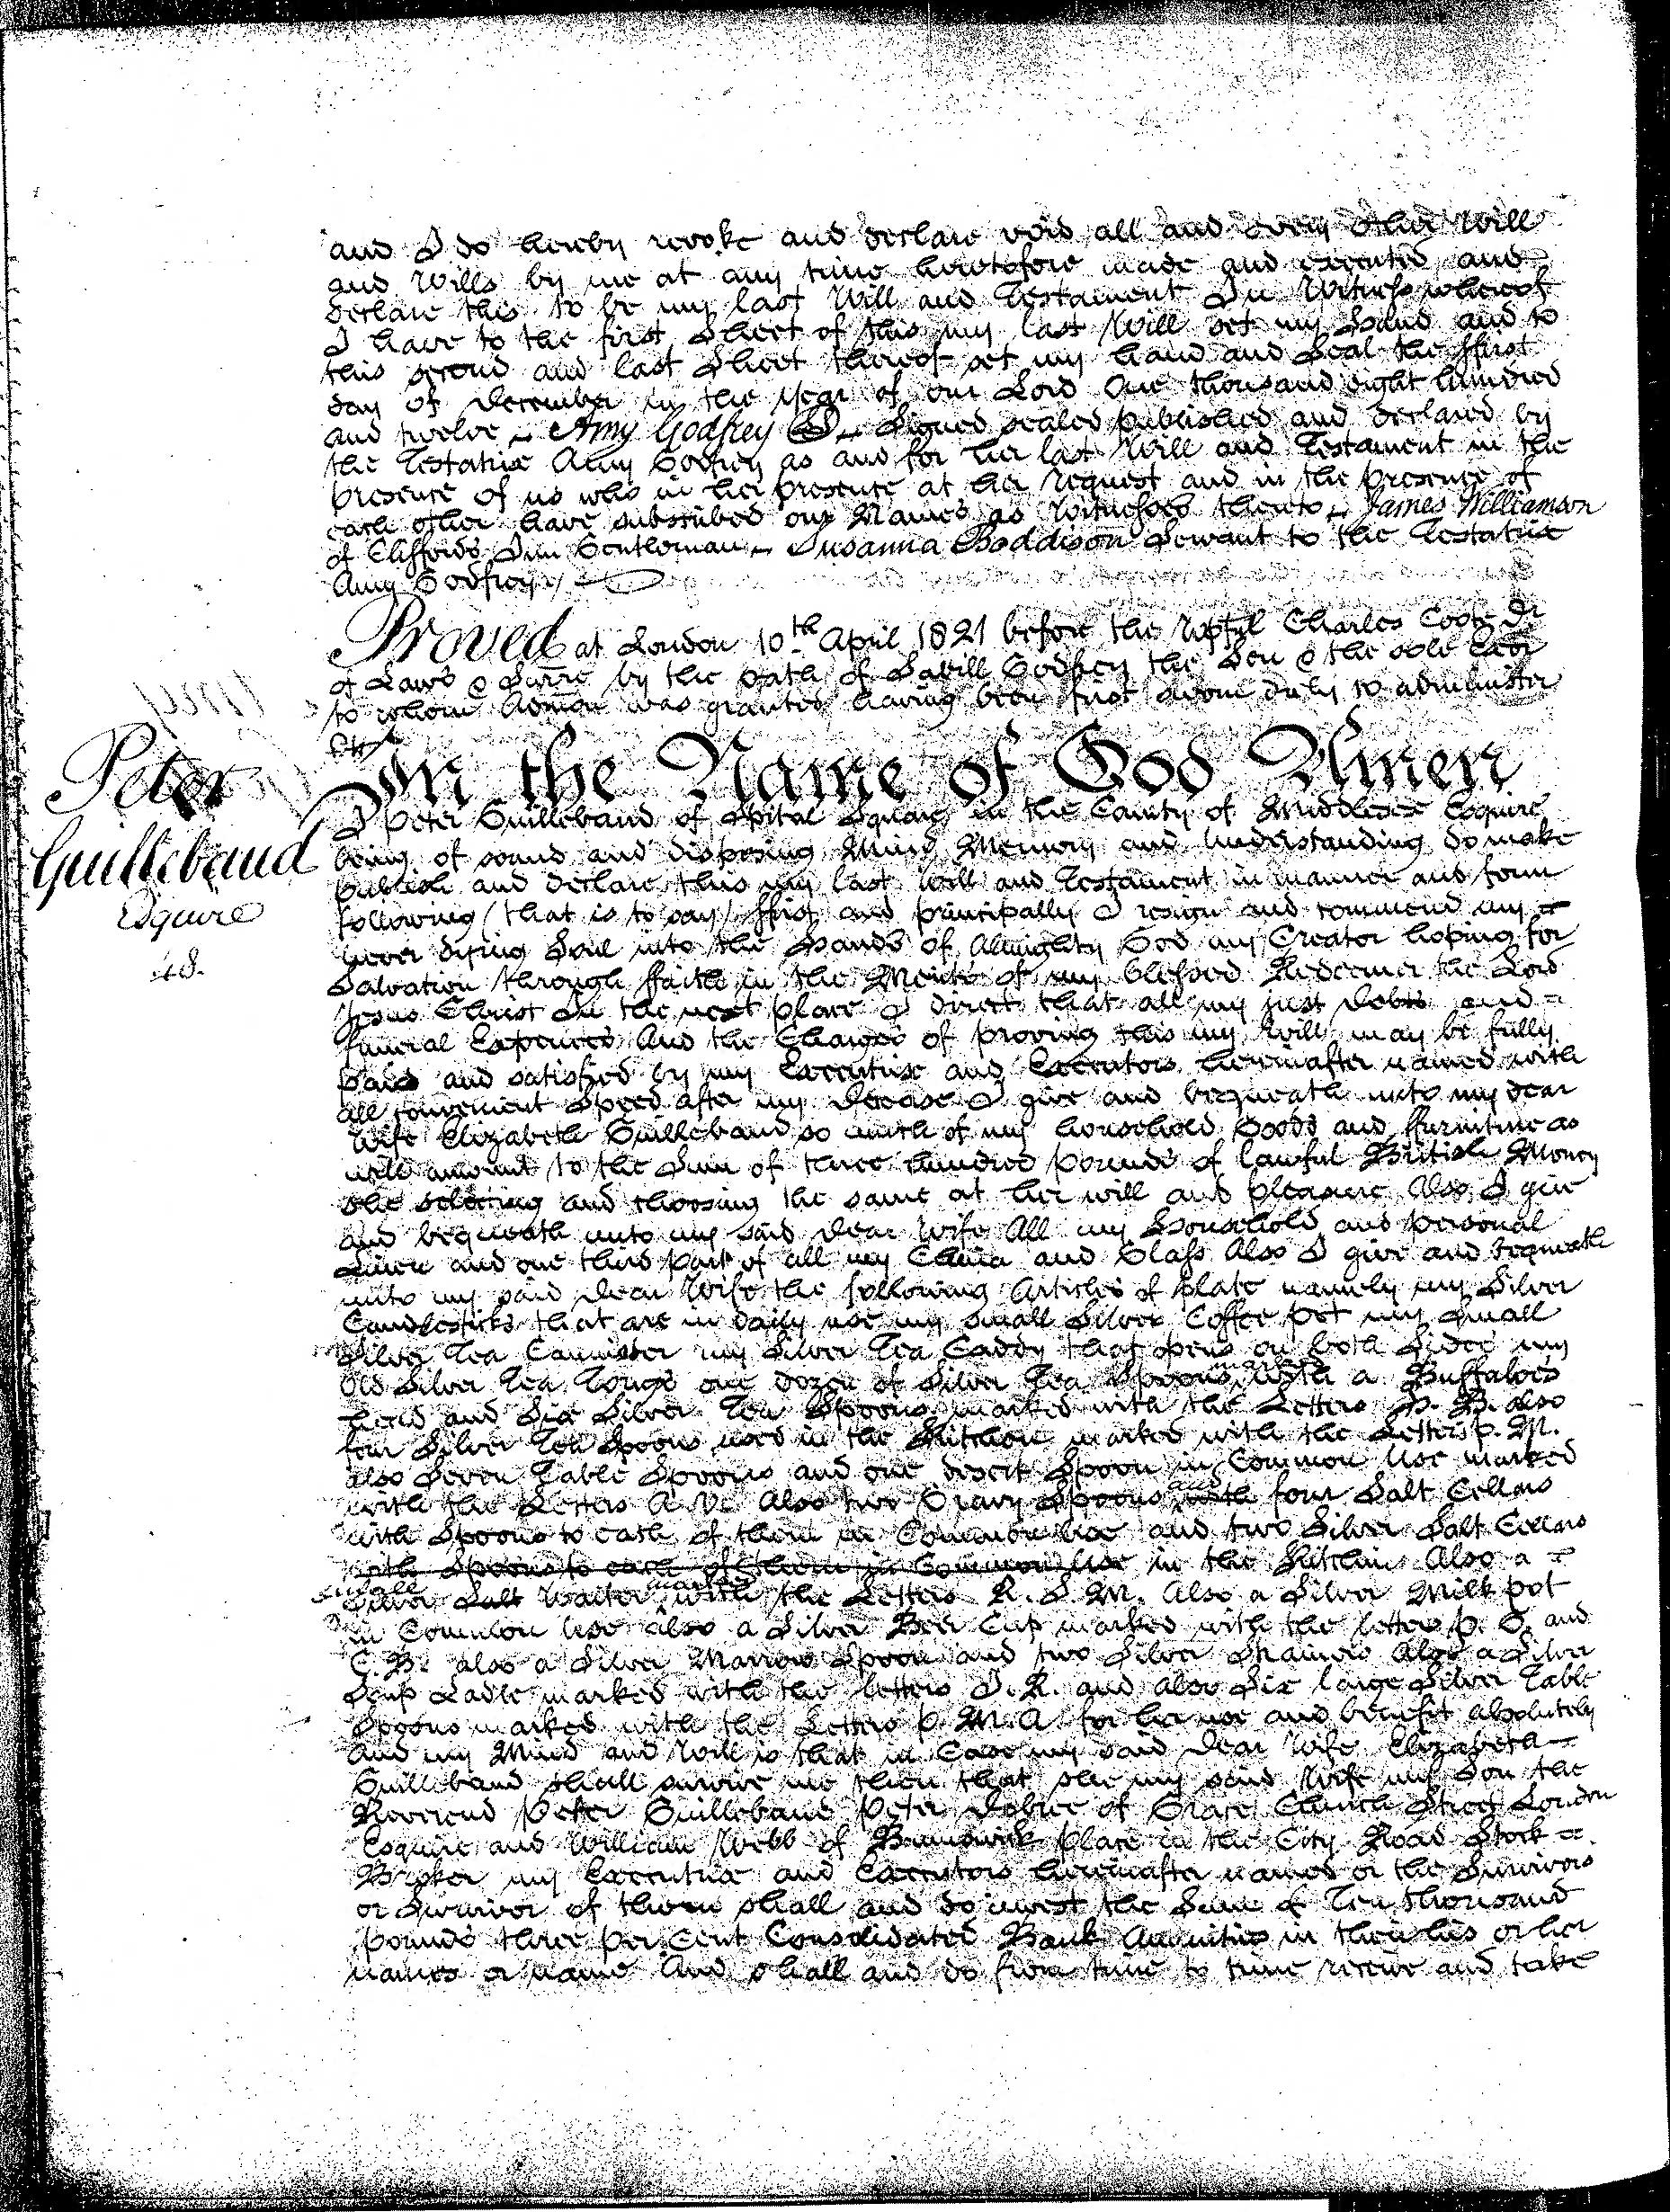 and I do hereby revoke and declare void all and every other Will
and Wills by me at any time heretofore made and executed and
declare this to be my last Will and Testament In Witness whereof
I have to the first Sheet of this my last Will set my Hand and to
this second and last Sheet thereof set my hand and Seal the ffirst
day of December in the year of our Lord One thousand eight hundred
and twelve ~ Amy Godfrey ~ Signed sealed published and declared by
the Testatrix Amy Godfrey as and for her last Will and Testament in the
presence of us who in her presence at her request and in the presence of
each other have subscribed our Names as Witnesses thereto ~ James Williamson
of Cliffords Inn Gentleman ~ Susanna Boddison Servant to the Testatrix
Amy Godfrey
Proved at London 10th April 1821 before the Wpful Charles Coote Dr
of Laws & Surre by the Oath of Savill Godfrey the Son & the sole Exor
to whom Admon was granted having been first sworn duly to administer
In the Name of God Amen
Peter
Guillebaud
Esquire
I Peter Guillebaud of Spital Square in the County of Middlesex Esquire
being of sound and disposing Mind Memory and Understanding do make
publish and declare this my last Will and Testament in manner and form
following (that is to say) ffirst and principally I resign and commend my
never dying Soul into the Hands of Almighty God my Creator hoping for
Salvation through ffaith in the Merits of my blessed Redeemer the Lord
Jesus Christ In the next place I direct that all my just Debts and
funeral Expences And the Charges of proving this my Will may be fully
paid and satisfied by my Executrix and Executors hereinafter named with
all convenient Speed after my Decease I give and bequeath unto my dear
Wife Elizabeth Guillebaud so much of my household Goods and ffurniture as
will amount to the Sum of three hundred pounds of lawful British Money
she selecting and choosing the same at her will and pleasure Also I give
and bequeath unto my said dear Wife All my Household and personal
Linen and one third part of all my China and Glass Also I give and bequeath
unto my said dear Wife the following Articles of plate namely my Silver
Candlesticks that are in daily use my small Silver Coffee pot my small
Silver Tea Cannister my Silver Tea Caddy that opens on both Sides my
Old Silver Tea Tongs one dozen of Silver Tea Spoons marked with a Buffaloe's
head and Six Silver Tea Spoons marked with the Letters P. B. also
four Silver Tea Spoons used in the Kitchen marked with the Letters P. M.
also Seven Table Spoons and one desert Spoon in Common Use marked
with the Letters A. V. Also two Gravy Spoons and with four Salt Cellars
with Spoons to each of them in Common Use and two Silver Salt Cellars
with Spoons to each of them in Common Use in the Kitchin Also a
small Silver Salt Waiter marked with the Letters R. S. M. Also a Silver Milk pot
in Common Use also a Silver Beer Cup marked with the letters P. G. and
C. B. also a Silver Marrow Spoon and two Silver Strainers Also a Silver
Soup Ladle marked with the letters J. R. and also Six large Silver Table
Spoons marked with the Letters P. M. A. for her use and benefit absolutely
And my Mind and Will is that in Case my said Dear Wife Elizabeth
Guillebaud shall survive me then that she my said Wife my Son the
Reverend Peter Guillebaud Peter Dobree of Grace Church Street London
Esquire and William Webb of Brunswick place in the City Road Stock
Broker my Executrix and Executors hereinafter named or the Survivors
or Survivor of them shall and do invest the Sum of Ten thousand
pounds three per Cent Consolidated Bank Annuities in their his or her
names or name And shall and do from time to time receive and take